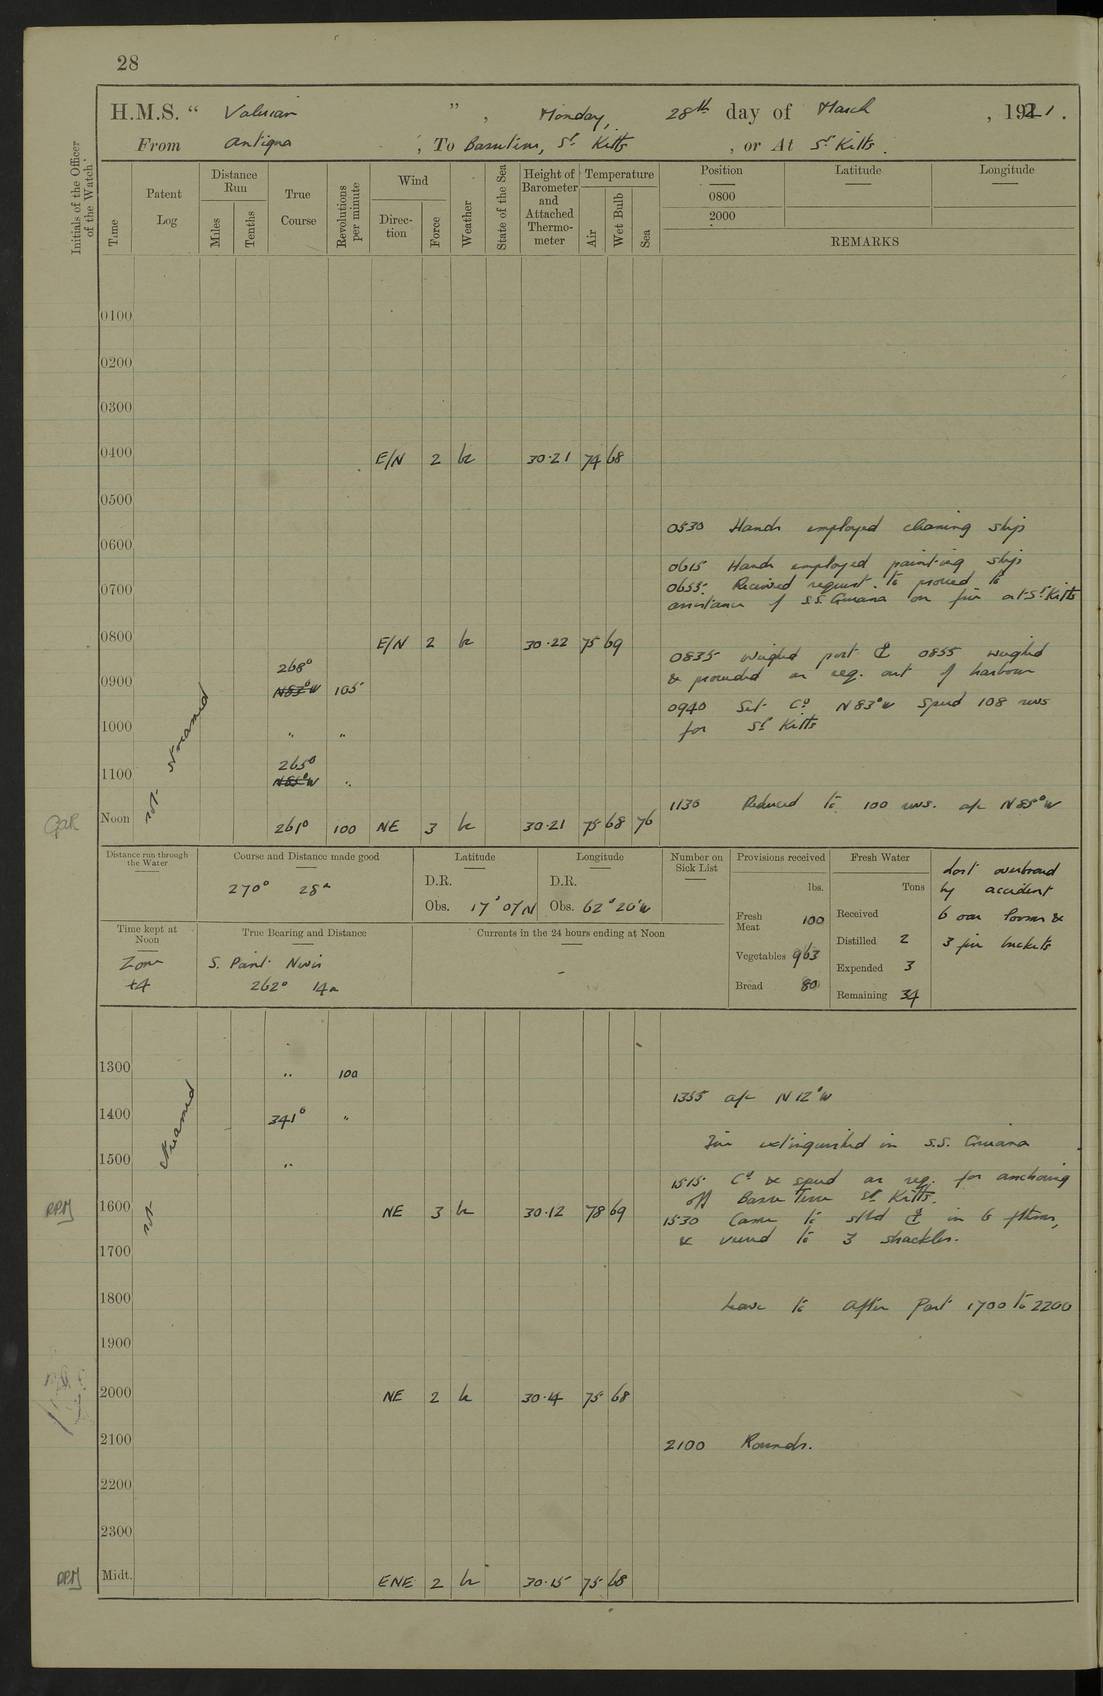 28
H.M.S. “ Valerian ” , Monday, 28th day of March , 1921.
From Antigua ; To Basseterre, St Kitts , or At St Kitts .
Initials of the Officer of the Watch.
Time
Patent Log
Distance Run
Miles
Tenths
True Course
Revolutions per minute
Wind
Direction
Force
Weather
State of the Sea
Height of Barometer and Attached Thermometer
Temperature
Air
Wet Bulb
Sea
Position Latitude Longitude
0800
2000
REMARKS
0100
0200
0300
0400 E/N 2 bc 30.21 74 68
0500
0530 Hands employed cleaning ship
0600
0615 Hands employed painting ship
0700
0655. Received request to proceed to
assistance of S.S. Guiana on fire at St Kitts
0800 E/N 2 bc 30.22 75 69
0835 weighed port ⚓ 0855 weighed
268°
& proceeded as req. out of harbour
0900 N83°W 105
0940 Set Co N83°W speed 108 revs
1000 " "
for St Kitts
265°
1100 N85°W "
1130 Reduced to 100 revs. a/c N85°W
Noon 261° 100 NE 3 bc 30.21 75 68 76
not streamed
Distance run through the Water
Course and Distance made good
270° 28m
Latitude
D.R.
Obs. 17°07'N
Longitude
D.R.
Obs. 62°20'W
Number on Sick List
Provisions received
lbs.
Fresh Meat 100
Vegetables 963
Bread 80
Fresh Water
Tons
Received
Distilled 2
Expended 3
Remaining 34
Lost overboard
by accident
6 oar &
3 fire buckets
Time kept at Noon
Zone
+4
True Bearing and Distance
S. Point Nevis
262° 14m
Currents in the 24 hours ending at Noon
-
1300 " 100
1355 a/c N12°W
1400 341° "
Fire extinguished in S.S. Guiana
1500 "
1515 Co & speed as req. for anchoring
off Basse Terre St Kitts.
RPM 1600 NE 3 bc 30.12 78 69
1530 Came to stbd ⚓ in 6 fthms,
& veered to 3 shackles.
not streamed
1700
1800
Leave to after Part 1700 to 2200
1900
2000 NE 2 bc 30.14 75 68
2100
2100 Rounds.
2200
2300
RPM Midt. ENE 2 bc 30.15 75 68